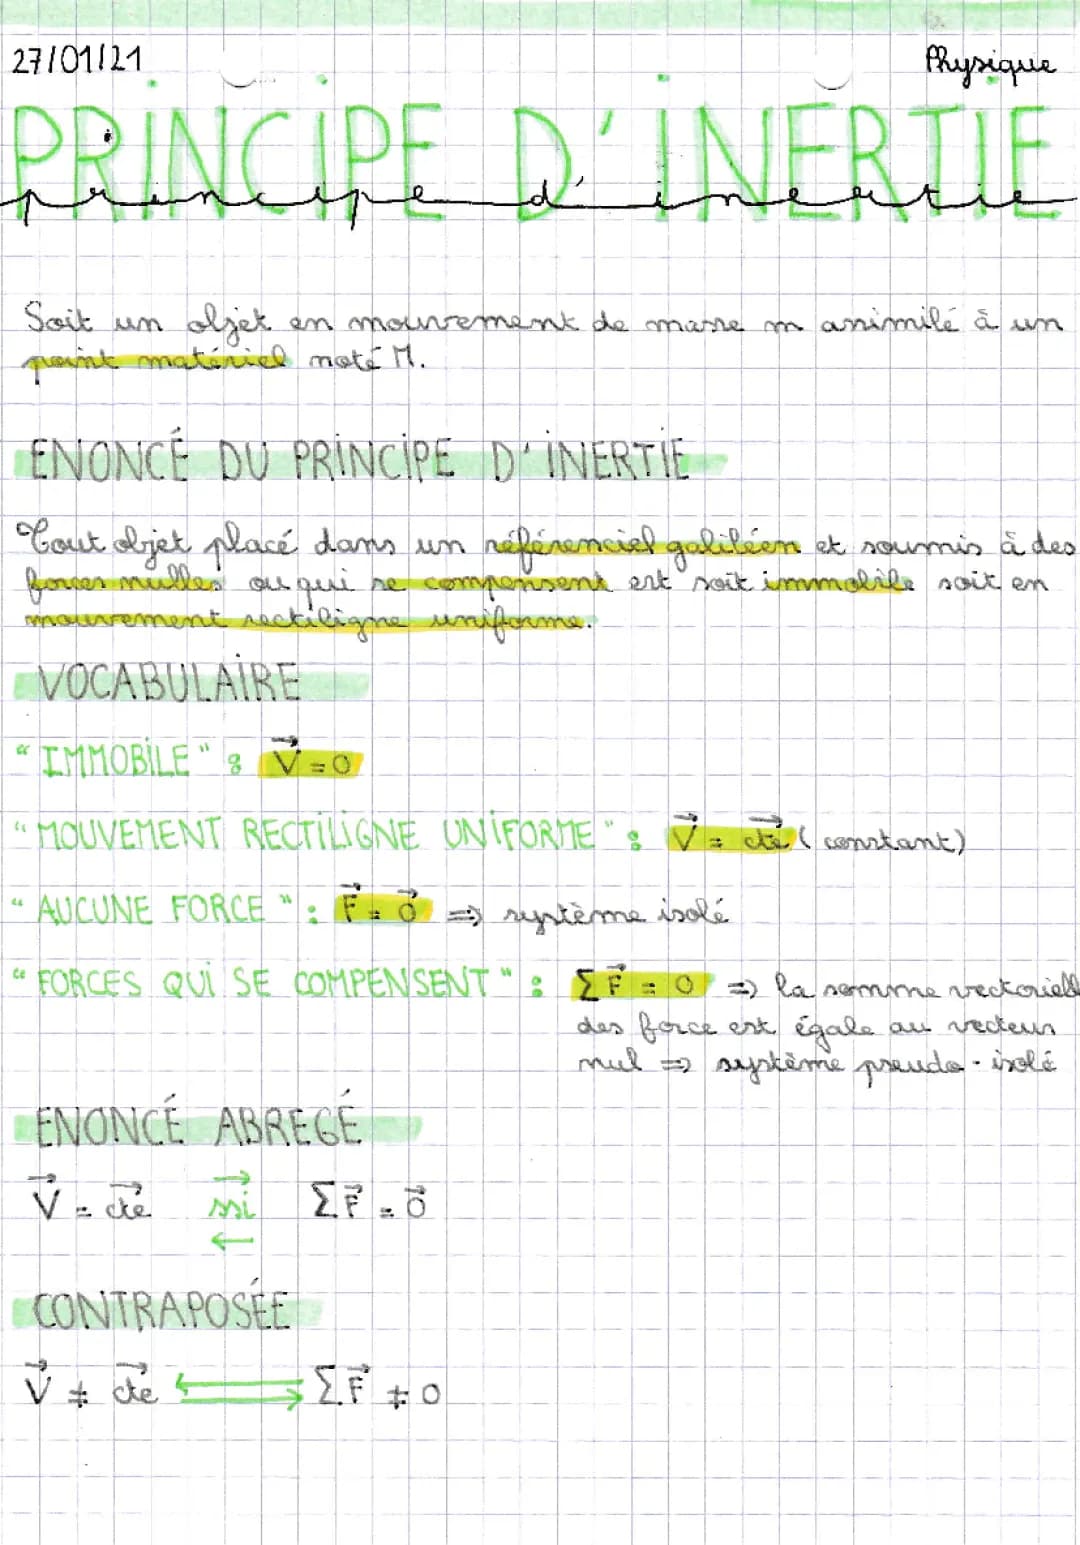 27/01/21
Physique
PRINCIPE D'INERTIE
principe d'inertie
Soit un objet en mouvement de masse m assimilé à un
point matériel noté M.
ENONCÉ DU PRINCIPE D'INERTIE
Tout objet placé dans un référenciel galiléen et soumis à des
forces nulles ou qui se compensent est soit immobile soit en
mouvement rectiligne uniforme.
VOCABULAIRE
"IMMOBILE" : V⃗ = 0
"MOUVEMENT RECTILIGNE UNIFORME" : V⃗ = cte⃗ (constant)
"AUCUNE FORCE" : F⃗ = 0⃗ => système isolé
"FORCES QUI SE COMPENSENT" : ∑F⃗ = 0 => la somme vectoriell
des force est égale au vecteur
nul => système pseudo-isolé
ENONCÉ ABREGÉ
V⃗ = cte⃗ ssi ∑F⃗ = 0⃗
CONTRAPOSÉE
V⃗ ≠ cte⃗ ⇆ ∑F⃗ ≠ 0